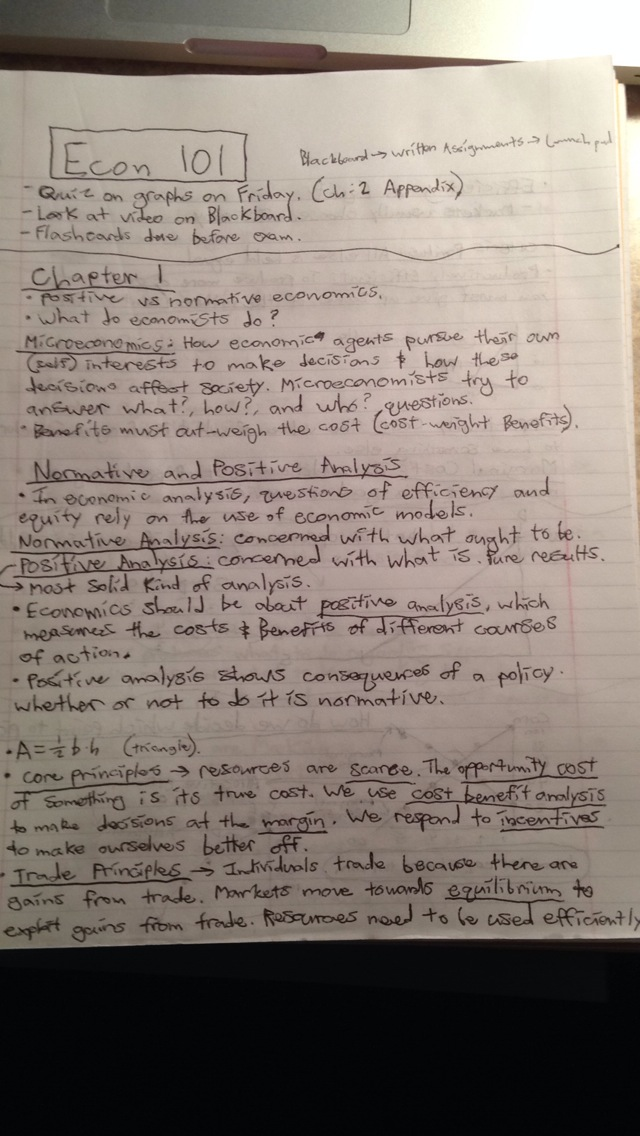 Blackboard → written Assignments → Launch pad
Econ 101
- Quiz on graphs on Friday. (ch: 2 Appendix)
- Look at video on Blackboard.
- Flashcards done before exam.
Chapter 1
• Positive vs normative economics.
• What do economists do?
Microeconomics: How economic agents pursue their own
(self) interests to make decisions & how these
decisions affect society. Microeconomists try to
answer what?, how?, and who? questions.
• Benefits must out-weigh the cost (cost-weight Benefits).
Normative and Positive Analysis
• In economic analysis, questions of efficiency and
equity rely on the use of economic models.
Normative Analysis: concerned with what ought to be.
Positive Analysis: concerned with what is. Pure results.
→ most solid kind of analysis.
• Economics should be about positive analysis, which
measures the costs & Benefits of different courses
of action.
• Positive analysis shows consequences of a policy.
whether or not to do it is normative.
• A = 1/2 b·h (triangle).
• Core principles → resources are scarse. The opportunity cost
of something is its true cost. We use cost benefit analysis
to make decisions at the margin. We respond to incentives
to make ourselves better off.
• Trade Principles → Individuals trade because there are
gains from trade. Markets move towards equilibrium to
exploit gains from trade. Resources need to be used efficiently